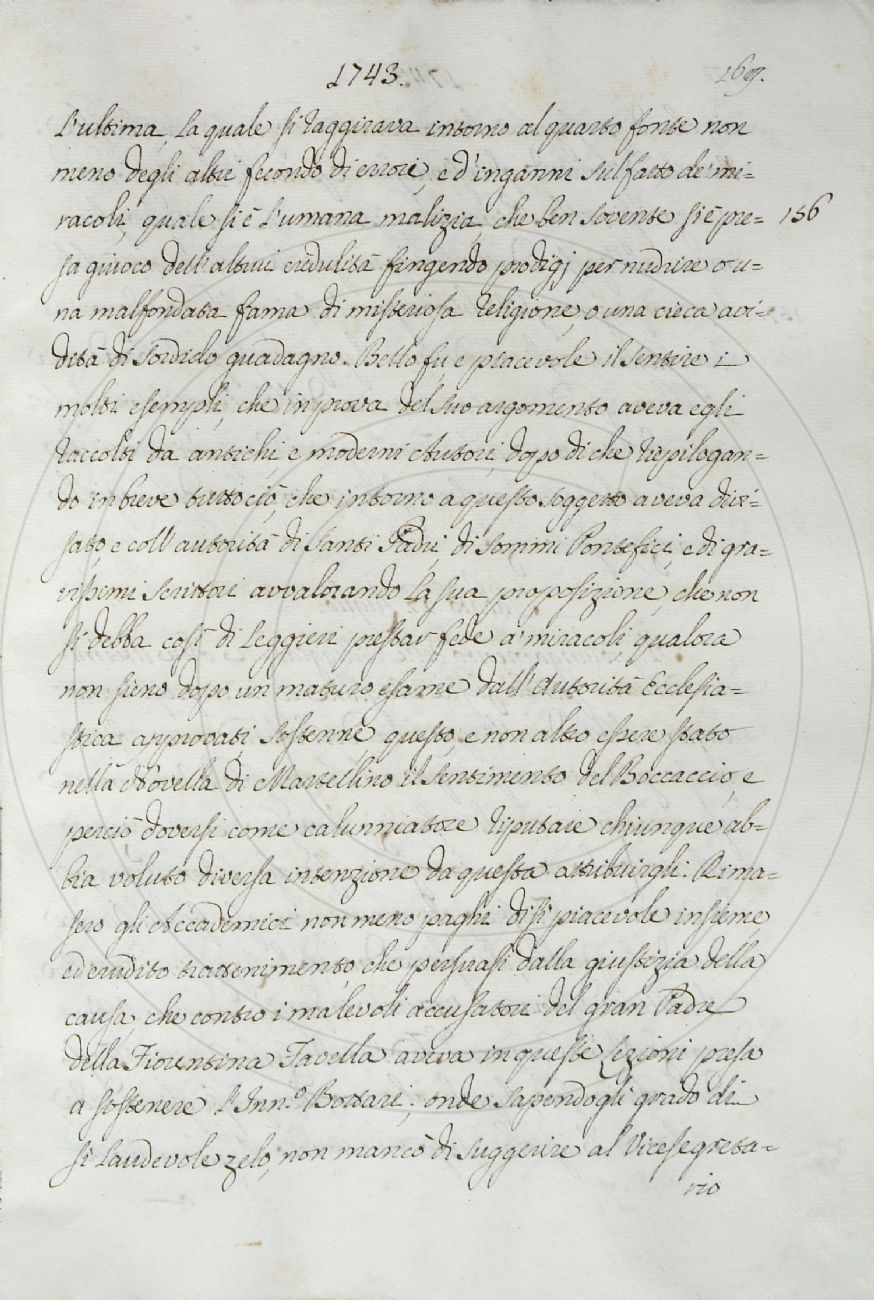 1743.
169.
L'ultima, la quale si raggirava intorno al quarto fonte non
meno degli altri fecondo di errori, e d'inganni sul fatto de' mi=
racoli, quale si è l'umana malizia, che ben sovente si è pre=
156
sa giuoco dell'altrui credulità fingendo prodigj per nudrire o u=
na malfondata fama di misteriosa religione, o una cieca avi=
dità di sordido guadagno. Bello fu, e piacevole il sentire i
molti esempli, che in prova del suo argomento aveva egli
raccolti da antichi e moderni Autori, dopo di che riepilogan=
do in breve tutto ciò, che intorno a questo soggetto aveva divi=
sato, e coll'autorità di Santi Padri, di Sommi Pontefici, e di gra=
vissimi Scrittori avvalorando la sua proposizione, che non
si debba così di leggieri prestar fede a' miracoli, qualora
non sieno dopo un maturo esame dall'Autorità Ecclesia=
stica approvati sostenne, questo, e non altro essere stato
nella Novella di Martellino il sentimento del Boccaccio, e
perciò doversi come calunniatore riputare chiunque ab=
bia voluto diversa intenzione da questa attribuirgli. Rima=
sero gli Accademici non meno paghi di sì piacevole insieme,
ed erudito trattenimento, che persuasi dalla giustizia della
causa, che contro i malevoli accusatori del gran Padre
della Fiorentina Favella aveva in queste lezioni presa
a sostenere l'Inn.o Bottari; onde sapendogli grado di
sì laudevole zelo, non mancò di suggerire al Vicesegreta=
rio